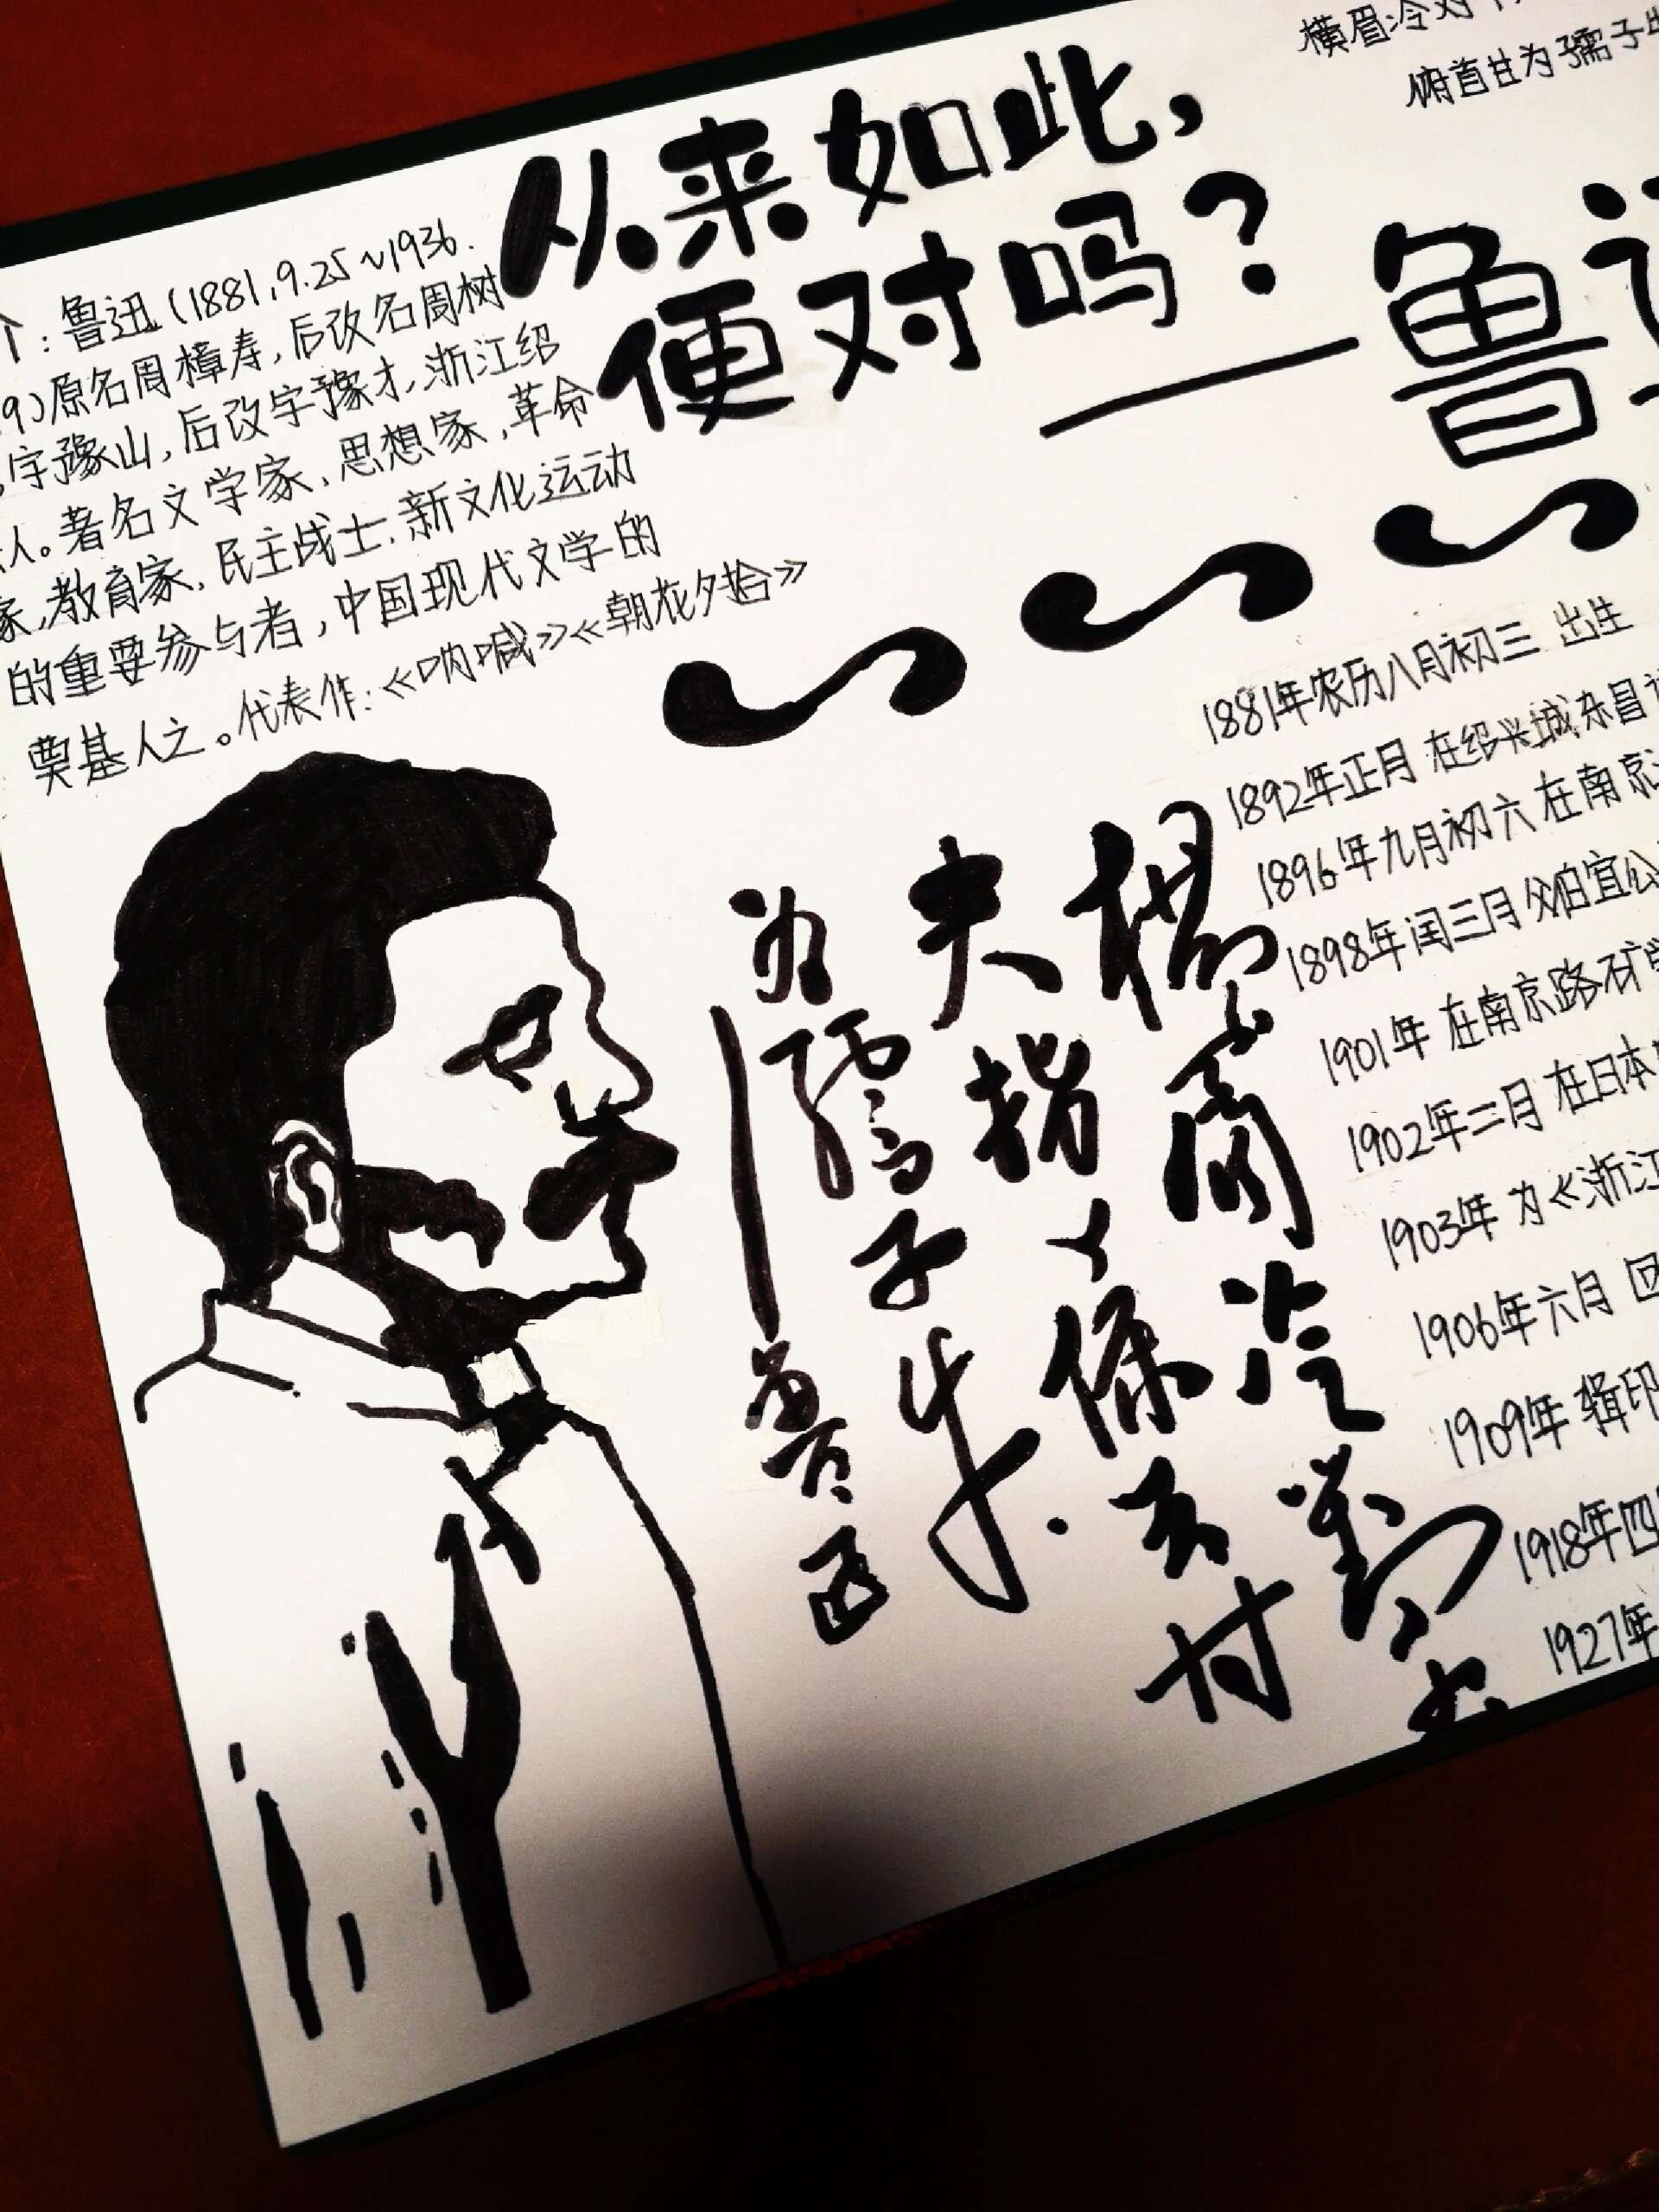 从来如此，
便对吗？
——鲁迅
横眉冷对
俯首甘为孺子
：鲁迅（1881.9.25~1936.
9）原名周樟寿，后改名周树
字豫山，后改字豫才，浙江绍
人。著名文学家，思想家，革命
家，教育家，民主战士，新文化运动
的重要参与者，中国现代文学的
奠基人之。代表作：《呐喊》《朝花夕拾》
1881年农历八月初三 出生
1892年正月 在绍兴城东昌
1896年九月初六 在南京
1898年闰三月 父伯宜公
1901年 在南京路矿
1902年二月 在日本
1903年 为《浙江
1906年六月 回
1909年 辑印
1918年四
1927年
冷對
夫指
为孺子牛.
鲁迅